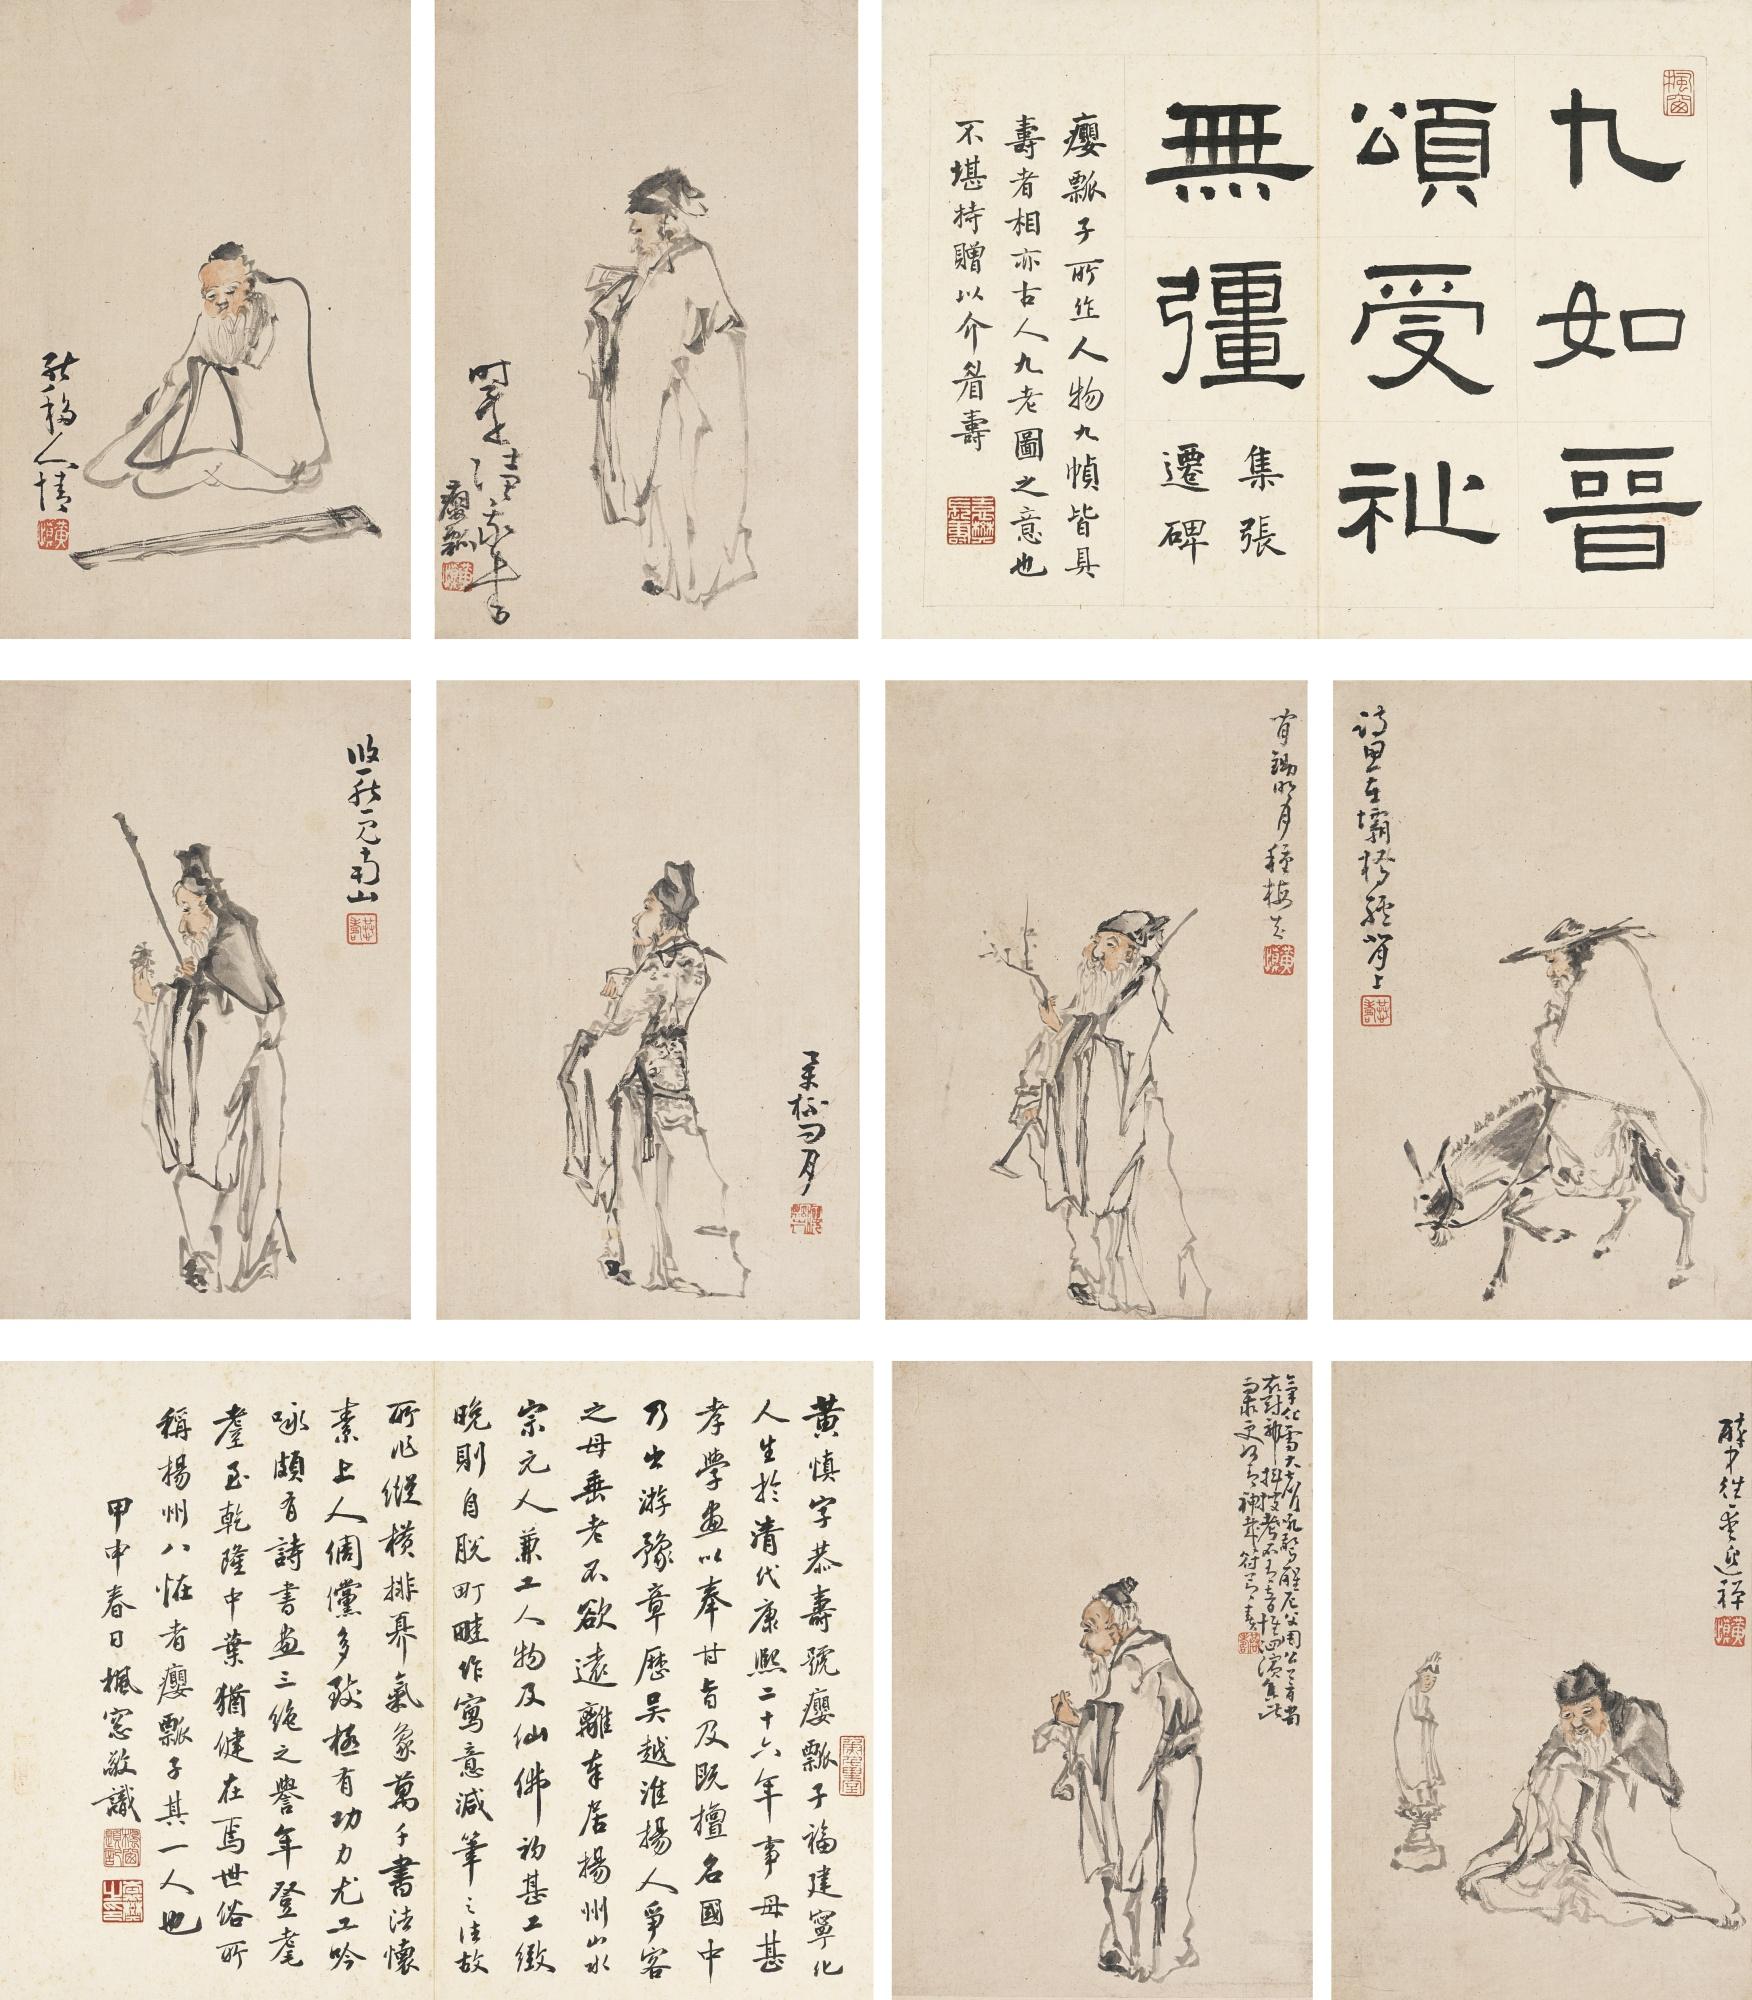 九如晉
頌受祉
無彊
集張
遷碑
癭瓢子所作人物九幀皆具
壽者相亦古人九老圖之意也
不堪持贈以介眉壽
癭瓢
黃慎
人情
黃慎
詩思在壩橋驢背上
有鋤明月種梅花
黃慎
南山
醉中往往愛逃禪
黃慎
黃慎字恭壽號癭瓢子福建寧化
人生於清代康熙二十六年事母甚
孝學畫以奉甘旨及既擅名國中
乃出游豫章歷吳越淮揚人爭客
之母垂老不欲遠離奉居揚州山水
宗元人兼工人物及仙佛初甚工緻
晚則自脫町畦作寫意減筆之法故
所作縱橫排奡氣象萬千書法懷
素上人倜儻多致極有功力尤工吟
咏頗有詩書畫三絕之譽年登耄
耋至乾隆中葉猶健在焉世俗所
稱揚州八怪者癭瓢子其一人也
甲申春日楓窓敬識